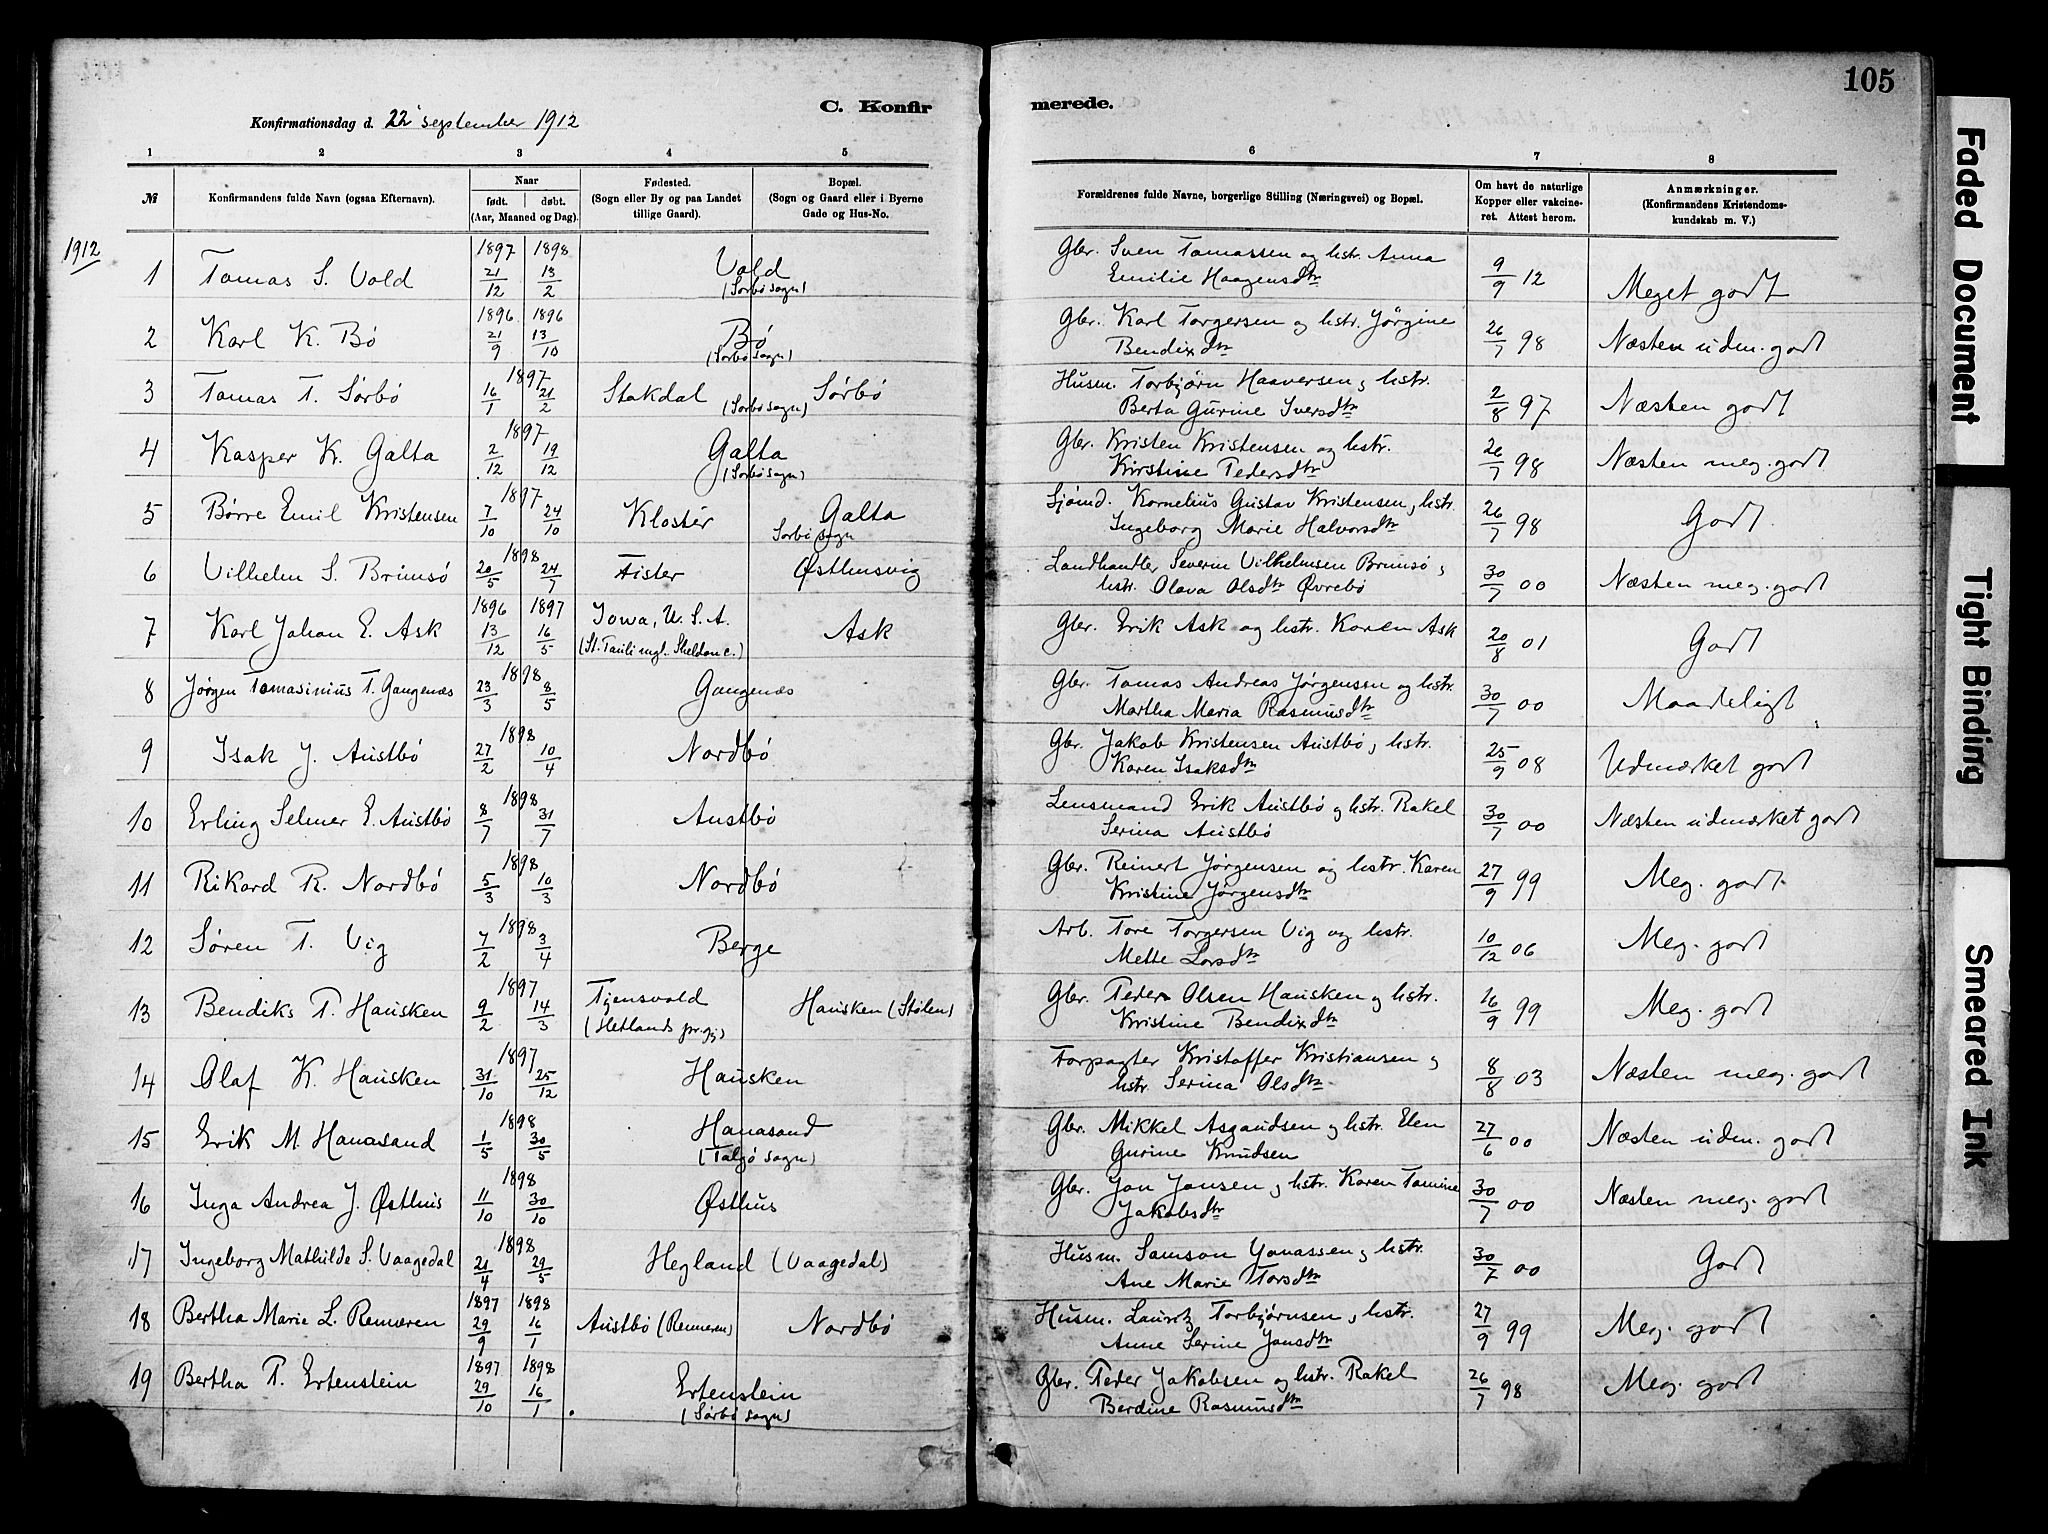 105
C. Konfirmerede.
Konfirmationsdag d. 22 september 1912
1 2 3 4 5 6 7 8
№ Konfirmandens fulde Navn (ogsaa Efternavn). Naar født. døbt. (Aar, Maaned og Dag). Fødested. (Sogn eller By og paa Landet tillige Gaard). Bopæl. (Sogn og Gaard eller i Byerne Gade og Hus-No. Forældrenes fulde Navne, borgerlige Stilling (Næringsvei) og Bopæl. Om havt de naturlige Kopper eller vakcineret. Attest herom. Anmærkninger. (Konfirmandens Kristendomskundskab m. V.)
1912
1897 1898 Gbr. Sven Tomassen og hstr. Anna
1 Tomas S. Vold 21/12 13/2 Vold (Sørbø sogn) Emilie Haagensdtr 9/9 12 Meget godt
1896 1896 Gbr. Karl Torgersen og hstr. Jørgine
2 Karl K. Bø 21/9 13/10 Bø (Sørbø sogn) Bendixdtr 26/7 98 Næsten udm. godt
1897 Husm. Torbjørn Haaversen, hstr.
3 Tomas T. Sørbø 16/1 21/2 Stokdal (Sørbø sogn) Sørbø Berta Gurine Iversdtr 2/8 97 Næsten godt
1897 Gbr. Kristen Kristensen og hstr.
4 Kasper K. Galta 2/12 19/12 Galta (Sørbø sogn) Kirstine Pedersdtr 26/7 98 Næsten meg. godt
1897 Sjømd. Kornelius Gustav Kristensen, hstr.
5 Børre Emil Kristensen 7/10 24/10 Kloster Galta Sørbø sogn Ingeborg Marie Halvorsdtr 26/7 98 Godt
1898 Landhandler Severin Vilhelmsen Brimsø,
6 Vilhelm S. Brimsø 20/5 24/7 Fister Østhusvig hstr. Olava Olsdtr Øvrebø 30/7 00 Næsten meg. godt
1896 1897 Iowa, U. S. A.
7 Karl Johan E. Ask 13/12 16/5 (St. Pauli mgl. Sheldon c.) Ask Gbr. Erik Ask og hstr. Karen Ask 20/8 01 Godt
1898 Gbr. Tomas Andreas Jørgensen og hstr.
8 Jørgen Tomasinius T. Gangenæs 23/3 8/5 Gangenæs Martha Maria Rasmusdtr 30/7 00 Maadeligt
1898 Gbr. Jakob Kristensen Austbø, hstr.
9 Isak J. Austbø 27/2 10/4 Nordbø Karen Isaksdtr 25/9 08 Udmærket godt
1898 Lensmand Erik Austbø og hstr. Rakel
10 Erling Selmer E. Austbø 8/7 31/7 Austbø Serina Austbø 30/7 00 Næsten udmærket godt
1898 Gbr. Reinert Jørgensen og hstr. Karen
11 Rikard R. Nordbø 5/3 10/3 Nordbø Kristine Jørgensdtr 27/9 99 Meg. godt
1898 Arb. Tore Torgersen Vig og hstr.
12 Søren T. Vig 7/2 3/4 Berge Mette Larsdtr 10/12 06 Meg. godt
1897 Gbr. Peder Olsen Hausken og hstr.
13 Bendiks P. Hausken 9/2 14/3 Tjensvold (Hetlands pr.gj) Hausken (Stølen) Kristine Bendixdtr 16/9 99 Meg. godt
1897 Forpagter Kristoffer Kristiansen og
14 Olaf K. Hausken 31/10 25/12 Hausken hstr. Serina Olsdtr 8/8 03 Næsten meg. godt
1898 Gbr. Mikkel Asgaudsen og hstr. Elen
15 Erik M. Hanasand 1/5 30/5 Hanasand (Talgø sogn) Gurine Knudsen 27/6 00 Næsten udm. godt
1898 Gbr. Jon Jonsen, hstr. Karen Tomine
16 Inga Andrea J. Østhus 11/10 30/10 Østhus Jakobsdtr 30/7 00 Næsten meg. godt
1898 Husm. Samson Jonassen, hstr.
17 Ingeborg Mathilde S. Vaagedal 21/4 29/5 Hegland (Vaagedal) Ane Marie Torsdtr 30/7 00 Godt
1897 1898 Husm. Lauritz Torbjørnsen, hstr.
18 Bertha Marie L. Remæren 29/9 16/1 Austbø (Remmeren) Nordbø Anne Serine Jonsdtr 27/9 99 Meg. godt
1897 1898 Gbr. Peder Jakobsen og hstr. Rakel
19 Bertha P. Ertenstein 29/10 16/1 Ertenstein (Sørbø sogn) Berdine Rasmusdtr 26/7 98 Meg. godt
Faded Document
Tight Binding
Smeared Ink